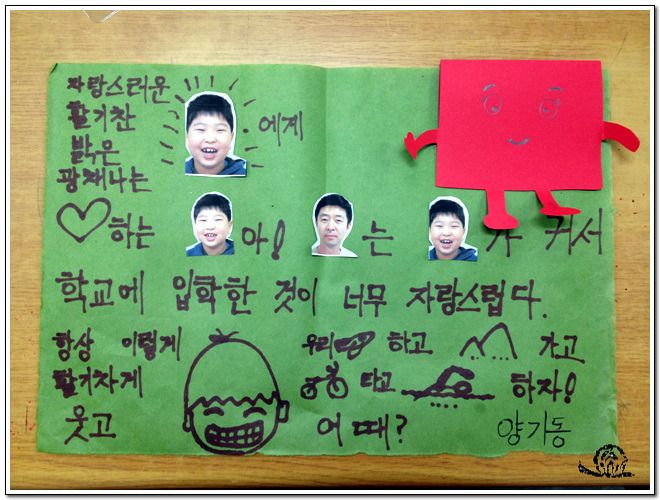 자랑스러운
활기찬
밝은
광채나는
에게
♡하는 아! 는 가 커서
학교에 입학한 것이 너무 자랑스럽다.
항상 이렇게
활기차게
웃고
우리 하고 가고
타고 하자!
어때?
양기동